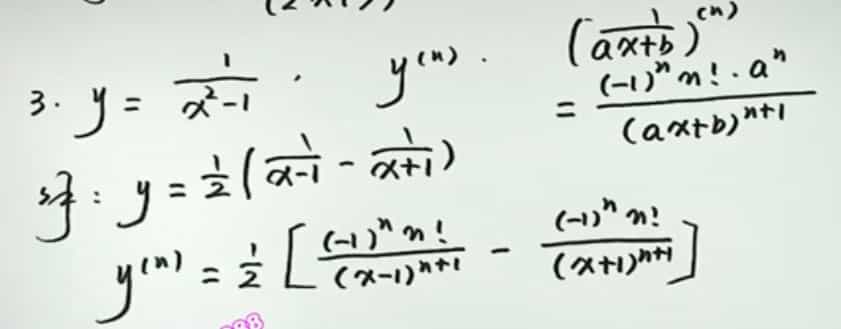 3. y = \frac{1}{x^2-1} . y^{(n)} .
(\frac{1}{ax+b})^{(n)}
= \frac{(-1)^n n! \cdot a^n}{(ax+b)^{n+1}}
解: y = \frac{1}{2} ( \frac{1}{x-1} - \frac{1}{x+1} )
y^{(n)} = \frac{1}{2} [ \frac{(-1)^n n!}{(x-1)^{n+1}} - \frac{(-1)^n n!}{(x+1)^{n+1}} ]